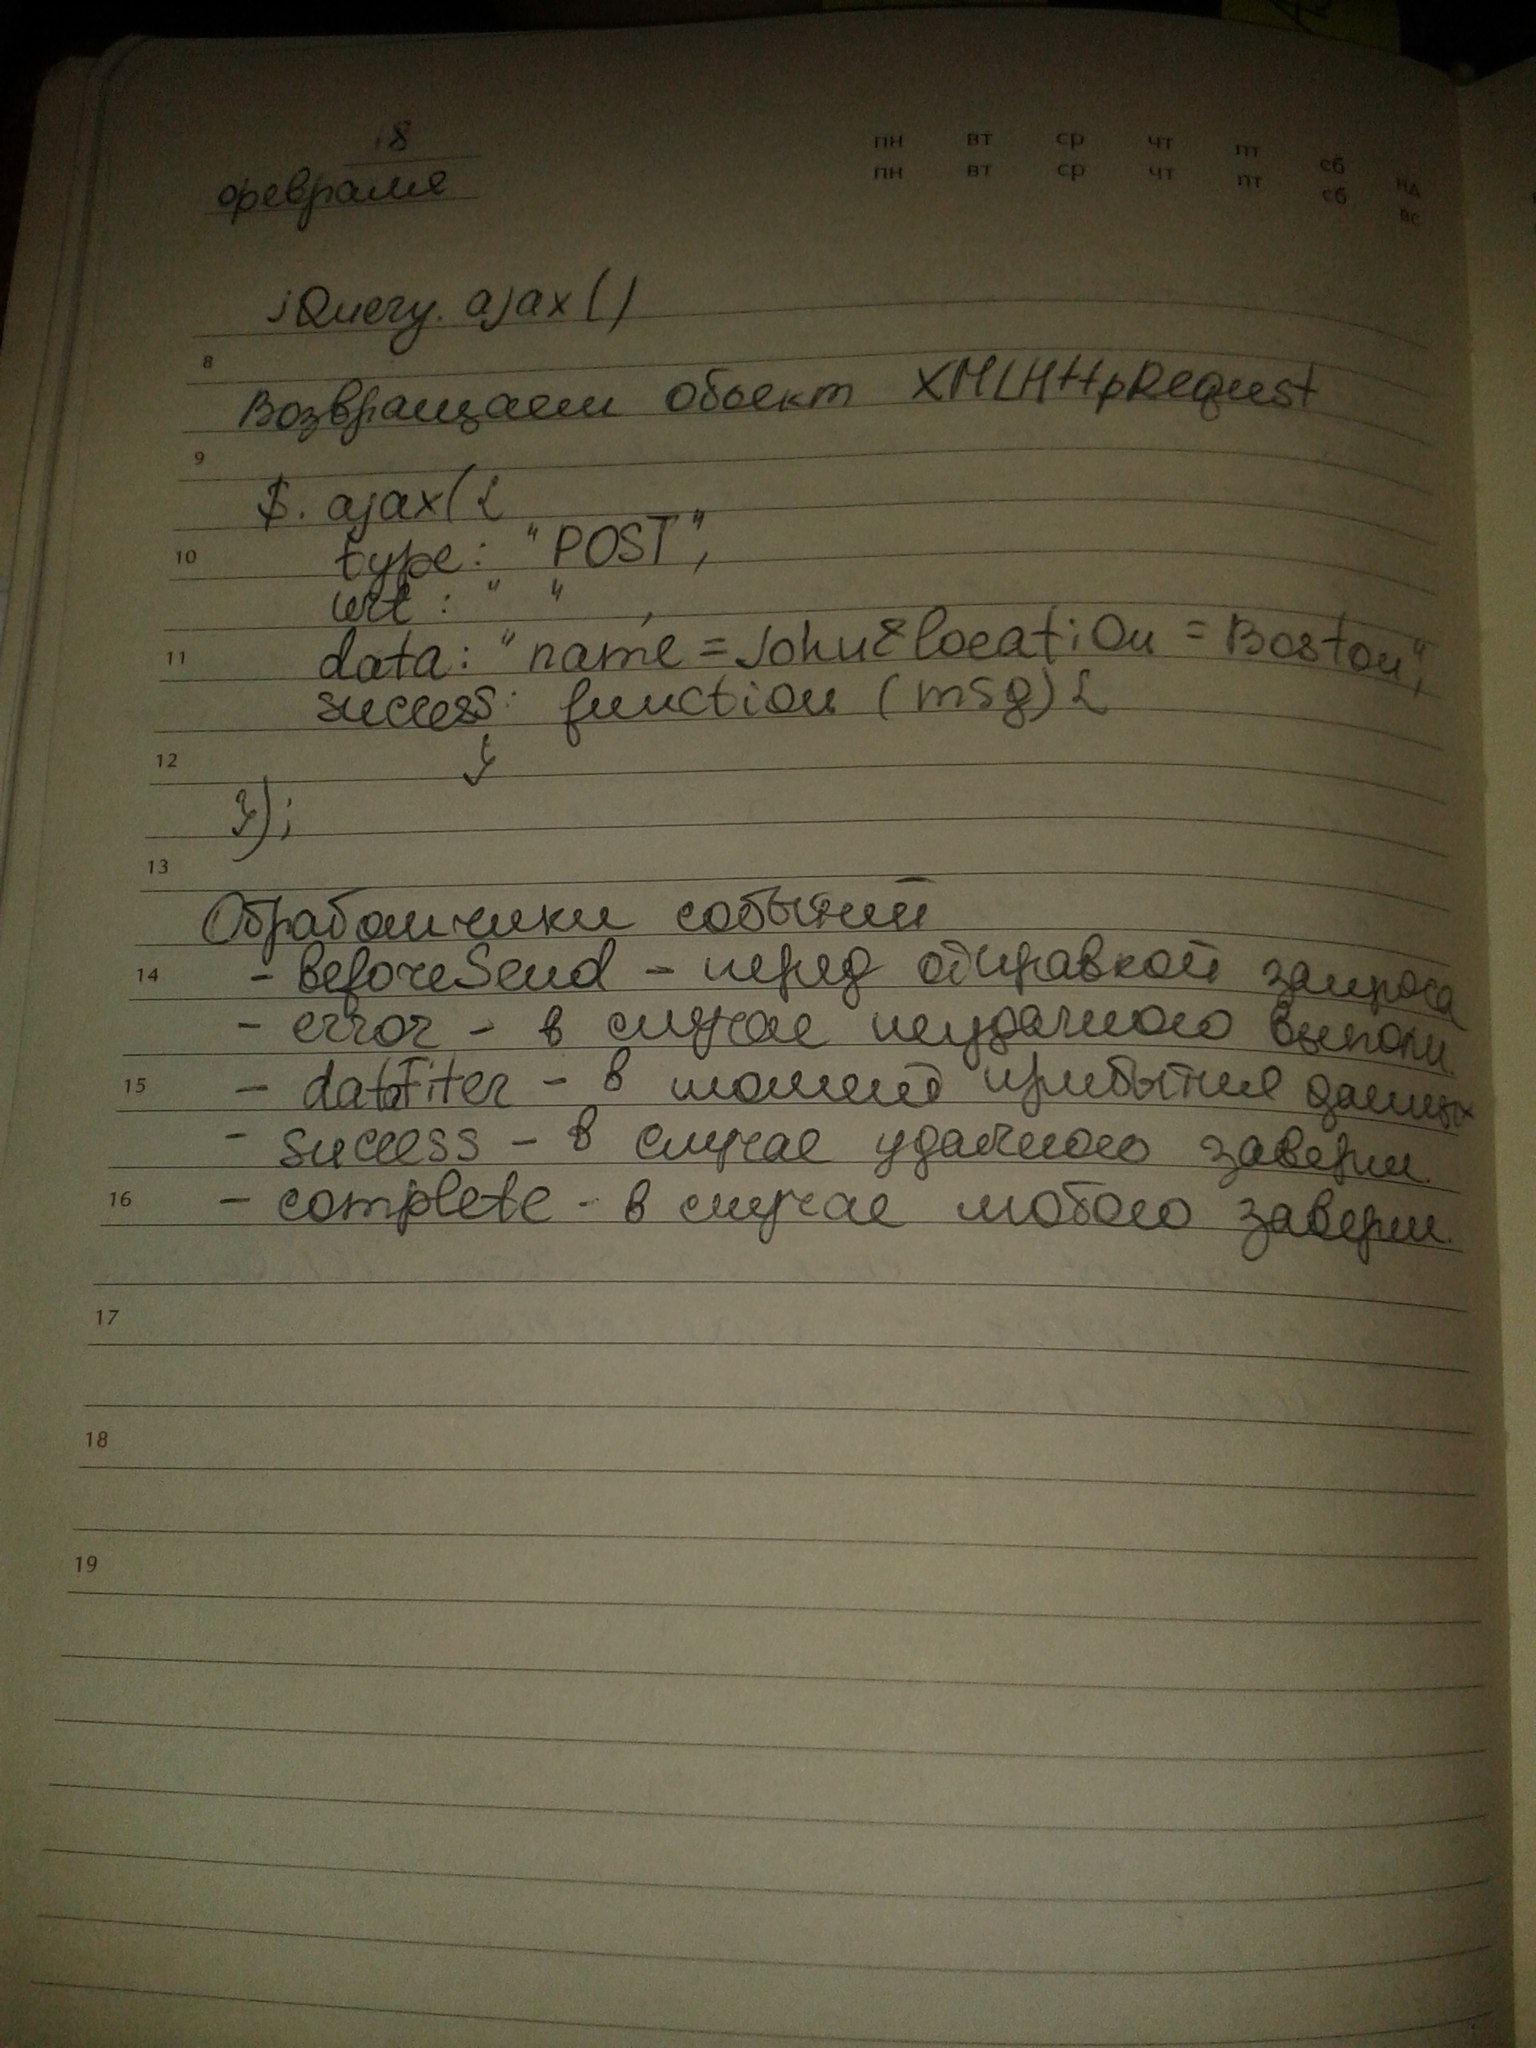 18
февраля
пн вт ср чт пт сб нд
пн вт ср чт пт сб вс
jQuery.ajax()
8
Возвращает объект XMLHttpRequest
9
$.ajax({
10 type: "POST",
url: " ",
11 data: "name=John&location=Boston",
success: function (msg) {
12 }
});
13
Обработчики событий
14 - beforeSend - перед отправкой запроса
- error - в случае неудачного выполн.
15 - dataFilter - в момент прибытия данных
- success - в случае удачного заверш.
16 - complete - в случае любого заверш.
17
18
19